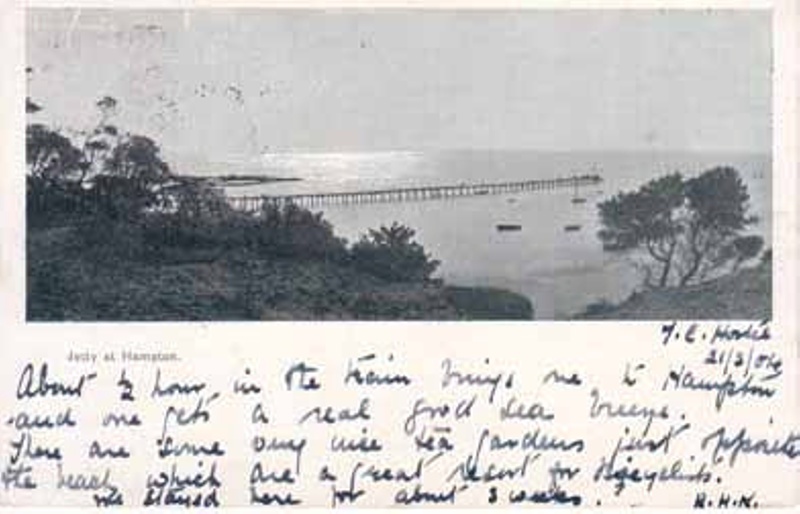 Jetty at Hampton.
21/3/04
About ½ hour in the train brings me to Hampton
and one gets a real good sea breeze.
There are some very nice tea gardens just opposite
the beach which are a great resort for Bicyclists.
We stayed here for about 3 weeks. R.H.K.